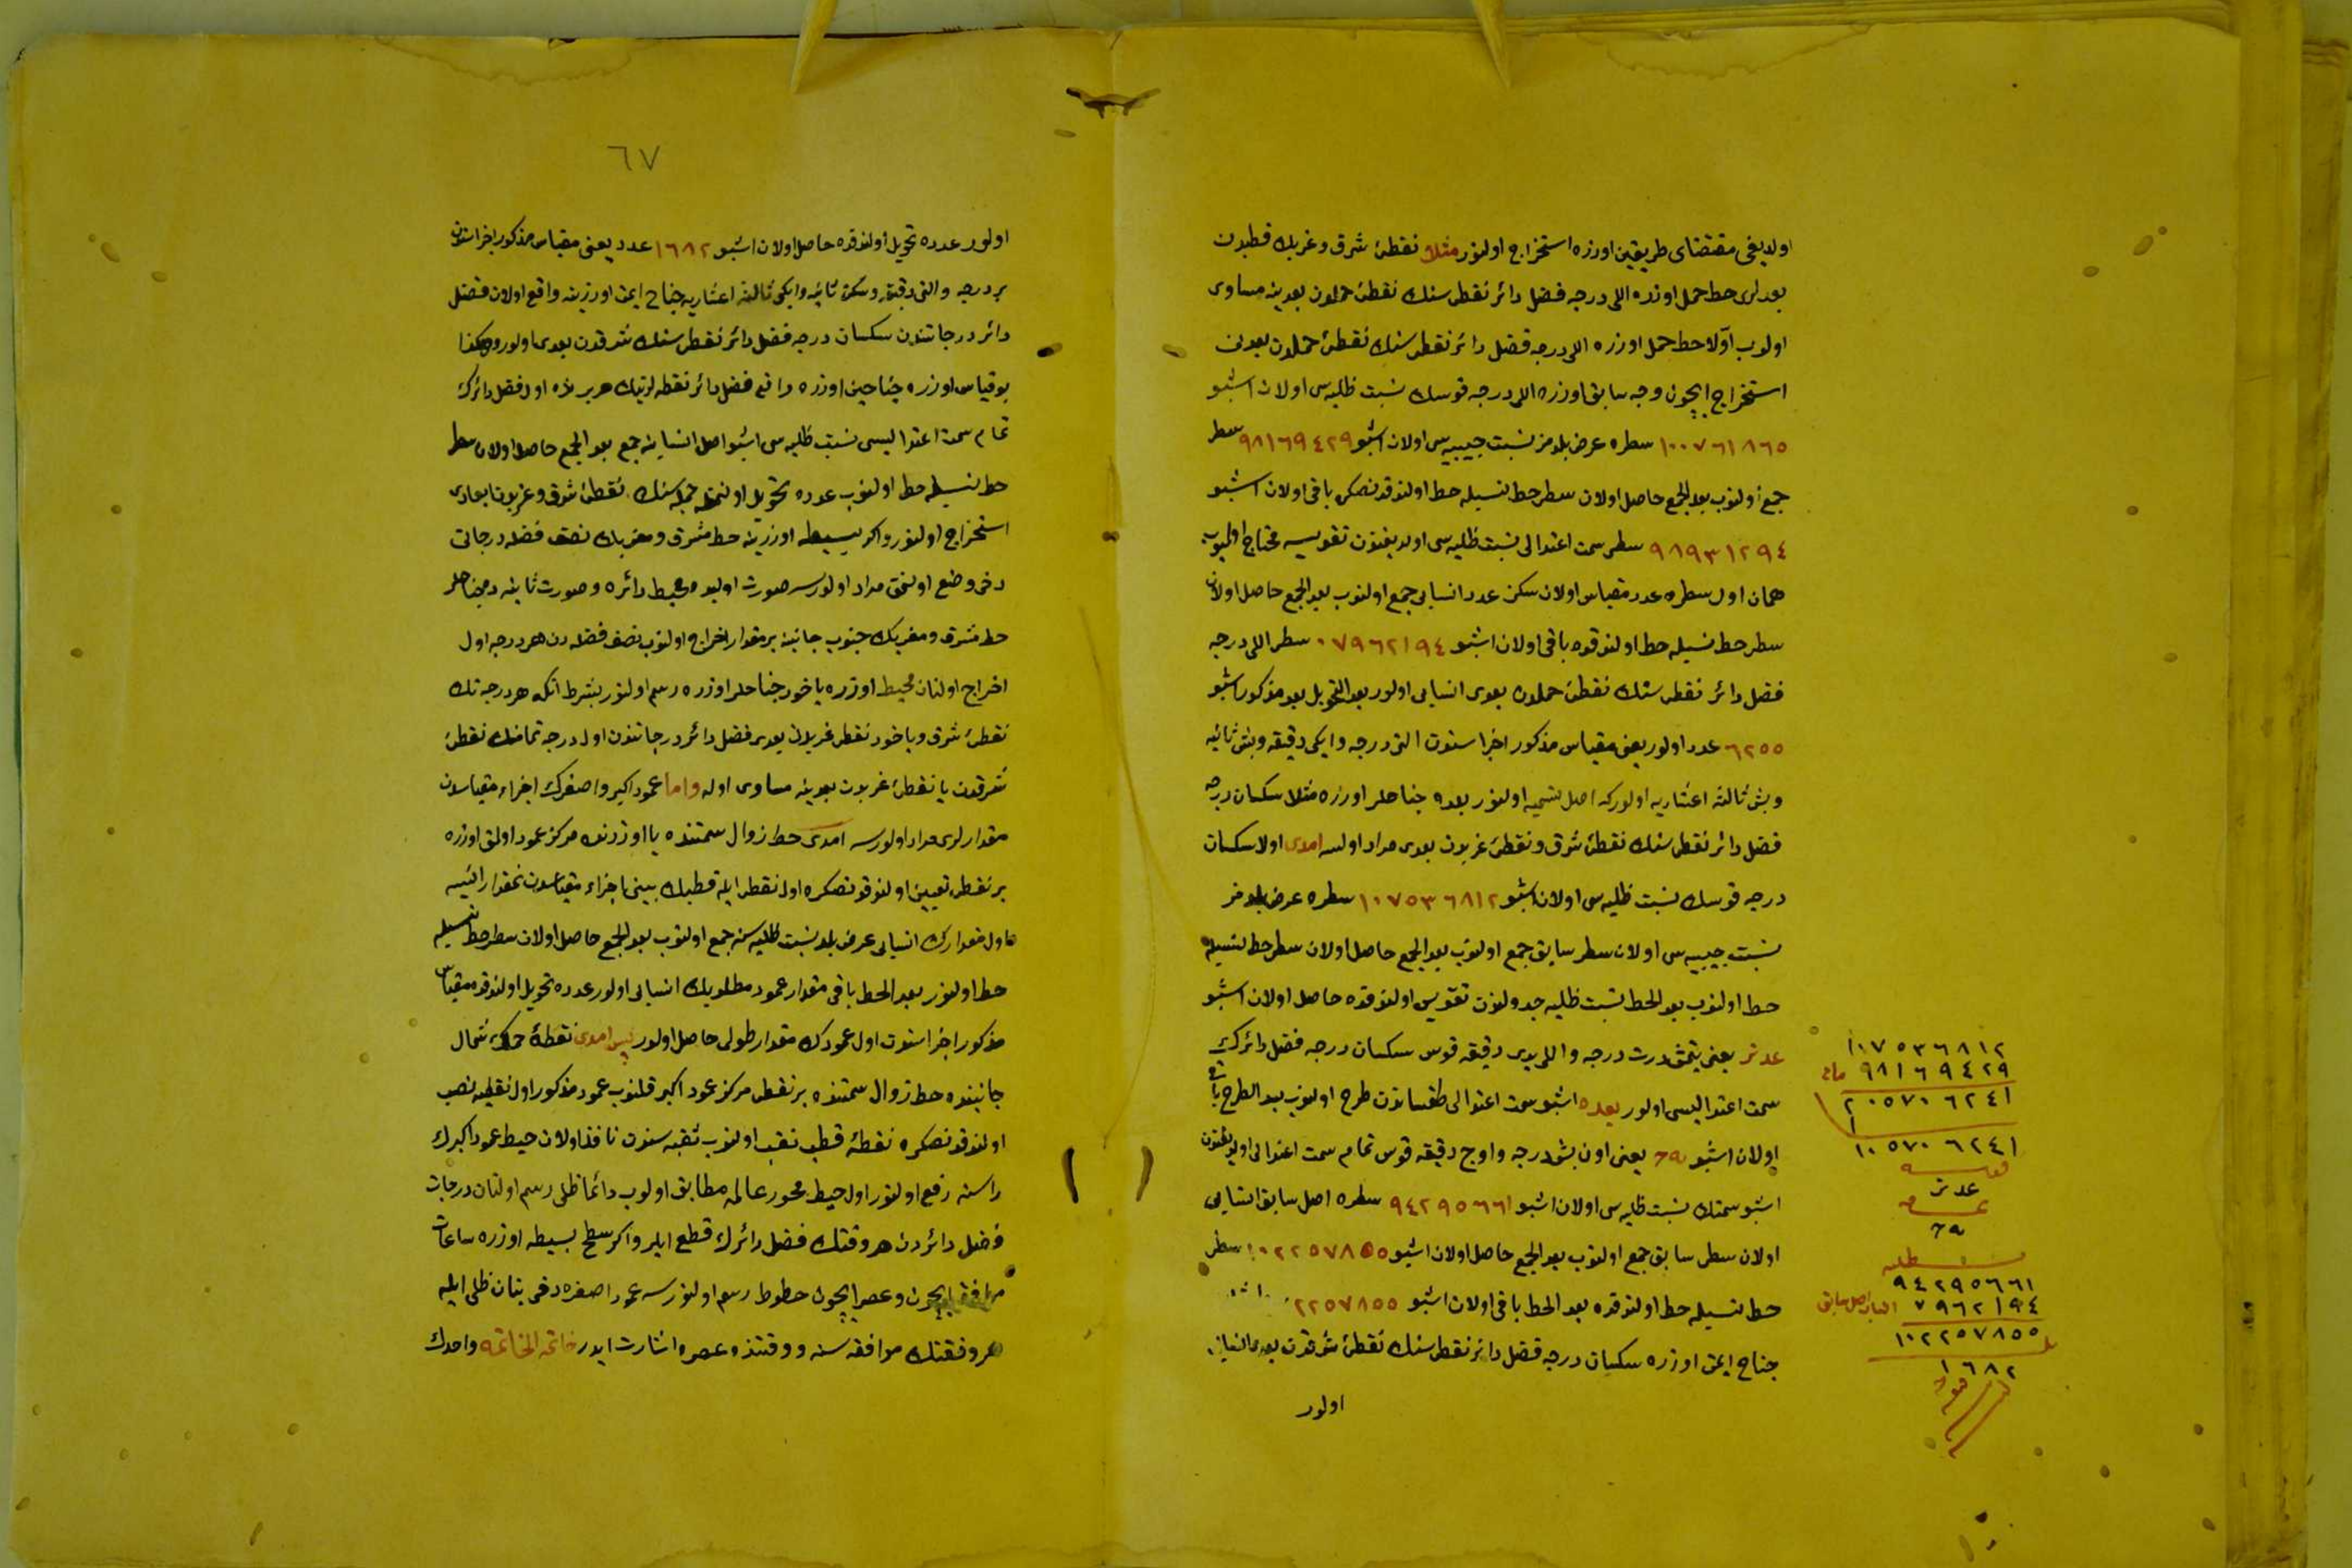 اولديغى مقتضاى طريقين اوزره استخراج اولنور مثلا نقطۀ شرق وغربك قطبدن
بعدلرى خط حمل اوزره اللى درجه فضل دائر نقطه سنك نقطۀ حملدن بعدينه مساوى
اولوب اولا خط حمل اوزره اللى درجه فضل دائر نقطه سنك نقطۀ حملدن بعدنى
استخراج ايچون وجه سابق اوزره اللى درجه قوسك نسبت ظليه سى اولان اشبو
١٠٠٧٦١٨٦٥ سطره عرض بلدمز نسبت جيبيه سى اولان اشبو ٩٨١٦٩٤٢٩ سطر
جمع اولنوب بعد الجمع حاصل اولان سطر حط اولندقدنصكره باقى اولان اشبو
٩٨٩٣١٢٩٤ سطر سمت اعتدالى نسبت ظليه سى اولديغندن تقويسه محتاج اولميوب
همان اول سطره عدد مقياس اولان سكز عدد انسابى جمع اولنوب بعد الجمع حاصل اولان
سطر حط اولندقده باقى اولان اشبو ٠٧٩٦٢١٩٤ سطر اللى درجه
فضل دائر نقطه سنك نقطۀ حملدن بعدى انسابى اولور بعد التحويل بعد مذكور اشبو
٦٢٥٥ عدد اولور يعنى مقياس مذكور اجزاسندن التى درجه وايكى دقيقه وبش ثانيه
وبش ثالثه اعشاريه اولور كه اصل تسميه اولنور بعده جناحلر اوزره مثلا سكسان درجه
فضل دائر نقطه سنك نقطۀ شرق ونقطۀ غربدن بعدى مراد اولسه امدى اولا سكسان
درجه قوسك نسبت ظليه سى اولان اشبو ١٠٧٥٣٦٨١٢ سطره عرض بلدمز
نسبت جيبيه سى اولان سطر سابق جمع اولنوب بعد الجمع حاصل اولان سطر حط
حط اولنوب بعد الحط نسبت ظليه جدولندن تقويس اولندقده حاصل اولان اشبو
عد نز يعنى يتمش درت درجه واللى يدى دقيقه قوس سكسان درجه فضل دائرك
سمت اعتداليسى اولور بعده اشبو سمت اعتدالى طقساندن طرح اولنوب بعد الطرح باقى
اولان اشبو يعنى اون بش درجه واوچ دقيقه قوس تمام سمت اعتدالى اولديغندن
اشبو سمتك نسبت ظليه سى اولان اشبو ٩٤٢٩٥٦٦١ سطره اصل سابق انسابى
اولان سطر سابق جمع اولنوب بعد الجمع حاصل اولان اشبو ١٠٢٢٥٧٨٥٥ سطر
حط اولندقده بعد الحط باقى اولان اشبو ٢٢٥٧٨٥٥
جناح ايمن اوزره سكسان درجه فضل دائر نقطه سنك نقطۀ شرقدن بعدى انسابى
اولور
١٠٧٥٣٦٨١٢
٩٨١٦٩٤٢٩
٢٠٥٧٠٦٢٤١
١
١٠٥٧٠٦٢٤١
قوسه
عد نز
تمامه
ظليه
٩٤٢٩٥٦٦١
٧٩٦٢١٩٤ انساب اصل سابق
١٠٢٢٥٧٨٥٥
١٦٨٢
٦٧
اولور عدده تحويل اولندقده حاصل اولان اشبو ١٦٨٢ عدد يعنى مقياس مذكور اجزاسندن
بر درجه والتى دقيقه وسكز ثانيه وايكى ثالثه اعشاريه جناح ايمن اوزرينه واقع اولان فضل
دائر درجاتندن سكسان درجه فضل دائر نقطه سنك شرقدن بعدى اولور وهكذا
بو قياس اوزره جناحين اوزره واقع فضل دائر نقطه لرينك هر برنده اول فضل دائرك
تمام سمت اعتداليسى نسبت ظليه سى اشبو اصل انسابنه جمع بعد الجمع حاصل اولان سطر
حط اولنوب عدده تحويل اولنمغله جمله سنك نقطۀ شرق وغربدن ابعادى
استخراج اولنور واكر بسيطه اوزرينه خط مشرق ومغربك نصف فضله درجاتى
دخى وضع اولنمق مراد اولنورسه صورت اوليده محيط دائره وصورت ثانيه ده جناحلر
خط مشرق ومغربك جنوب جانبنه بر مقدار اخراج اولنوب نصف فضله دن هر درجه اول
اخراج اولنان محيط اوزره ياخود جناحلر اوزره رسم اولنور بشرط آنكه هر درجه نك
نقطۀ شرق وياخود نقطۀ غربدن بعدى فضل دائر درجاتندن اول درجه تمامنك نقطۀ
شرقدن يا نقطۀ غربدن بعدينه مساوى اوله واما عمود اكبر واصغرك اجزاء مقياسدن
مقدارلرى مراد اولورسه امدى خط زوال سمتنده يا اوزرنده مركز عمود اولمق اوزره
بر نقطه تعيين اولندقدنصكره اول نقطه ايله قطبك بينى اجزاء مقياسدن نمقدار ايسه
اول مقدارك انسابى عرض بلد نسبت ظليه سنه جمع اولنوب بعد الجمع حاصل اولان سطر حط
حط اولنور بعد الحط باقى مقدار عمود مطلوبك انسابى اولور عدده تحويل اولندقده مقياس
مذكور اجزاسندن اول عمودك مقدار طولى حاصل اولور پس امدى نقطۀ شمال
جانبنده خط زوال سمتنده بر نقطه مركز عمود اكبر قلنوب عمود مذكور اول نقطه يه نصب
اولندقدنصكره نقطۀ قطب نقب اولنوب ثقبه سندن نافذ اولان خيط عمود اكبرك
راسنه رفع اولنور اول خيط محور عالمه مطابق اولوب دائما ظلى رسم اولنان درجات
فضل دائردن هر وقتك فضل دائرك قطع ايلر واكر سطح بسيطه اوزره ساعات
ايچون وعصر ايچون خطوط رسم اولنورسه عمود اصغره دخى بنان ظلى ايله
موافقه سنه ووقتنده عصره اشارت ايدر خاتمة الخاتمه واحدك